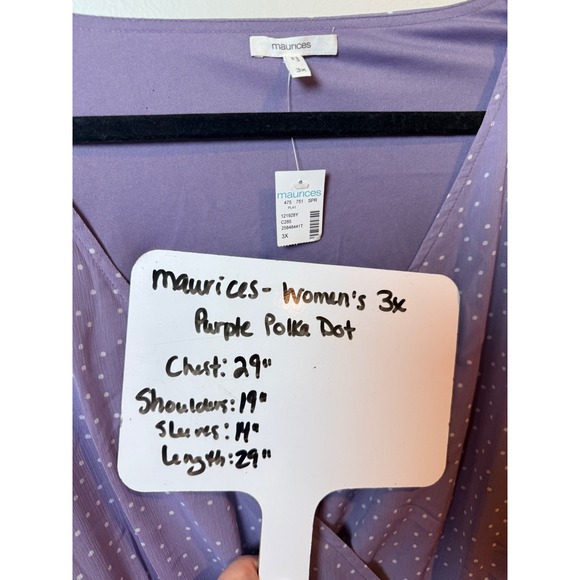 maurices
3x
maurices
475 751 SPR
PLAY
121928Y
C285
258484417
3X
Maurices - Women's 3x
Purple Polka Dot
Chest: 29"
Shoulders: 19"
Sleeves: 14"
Length: 29"